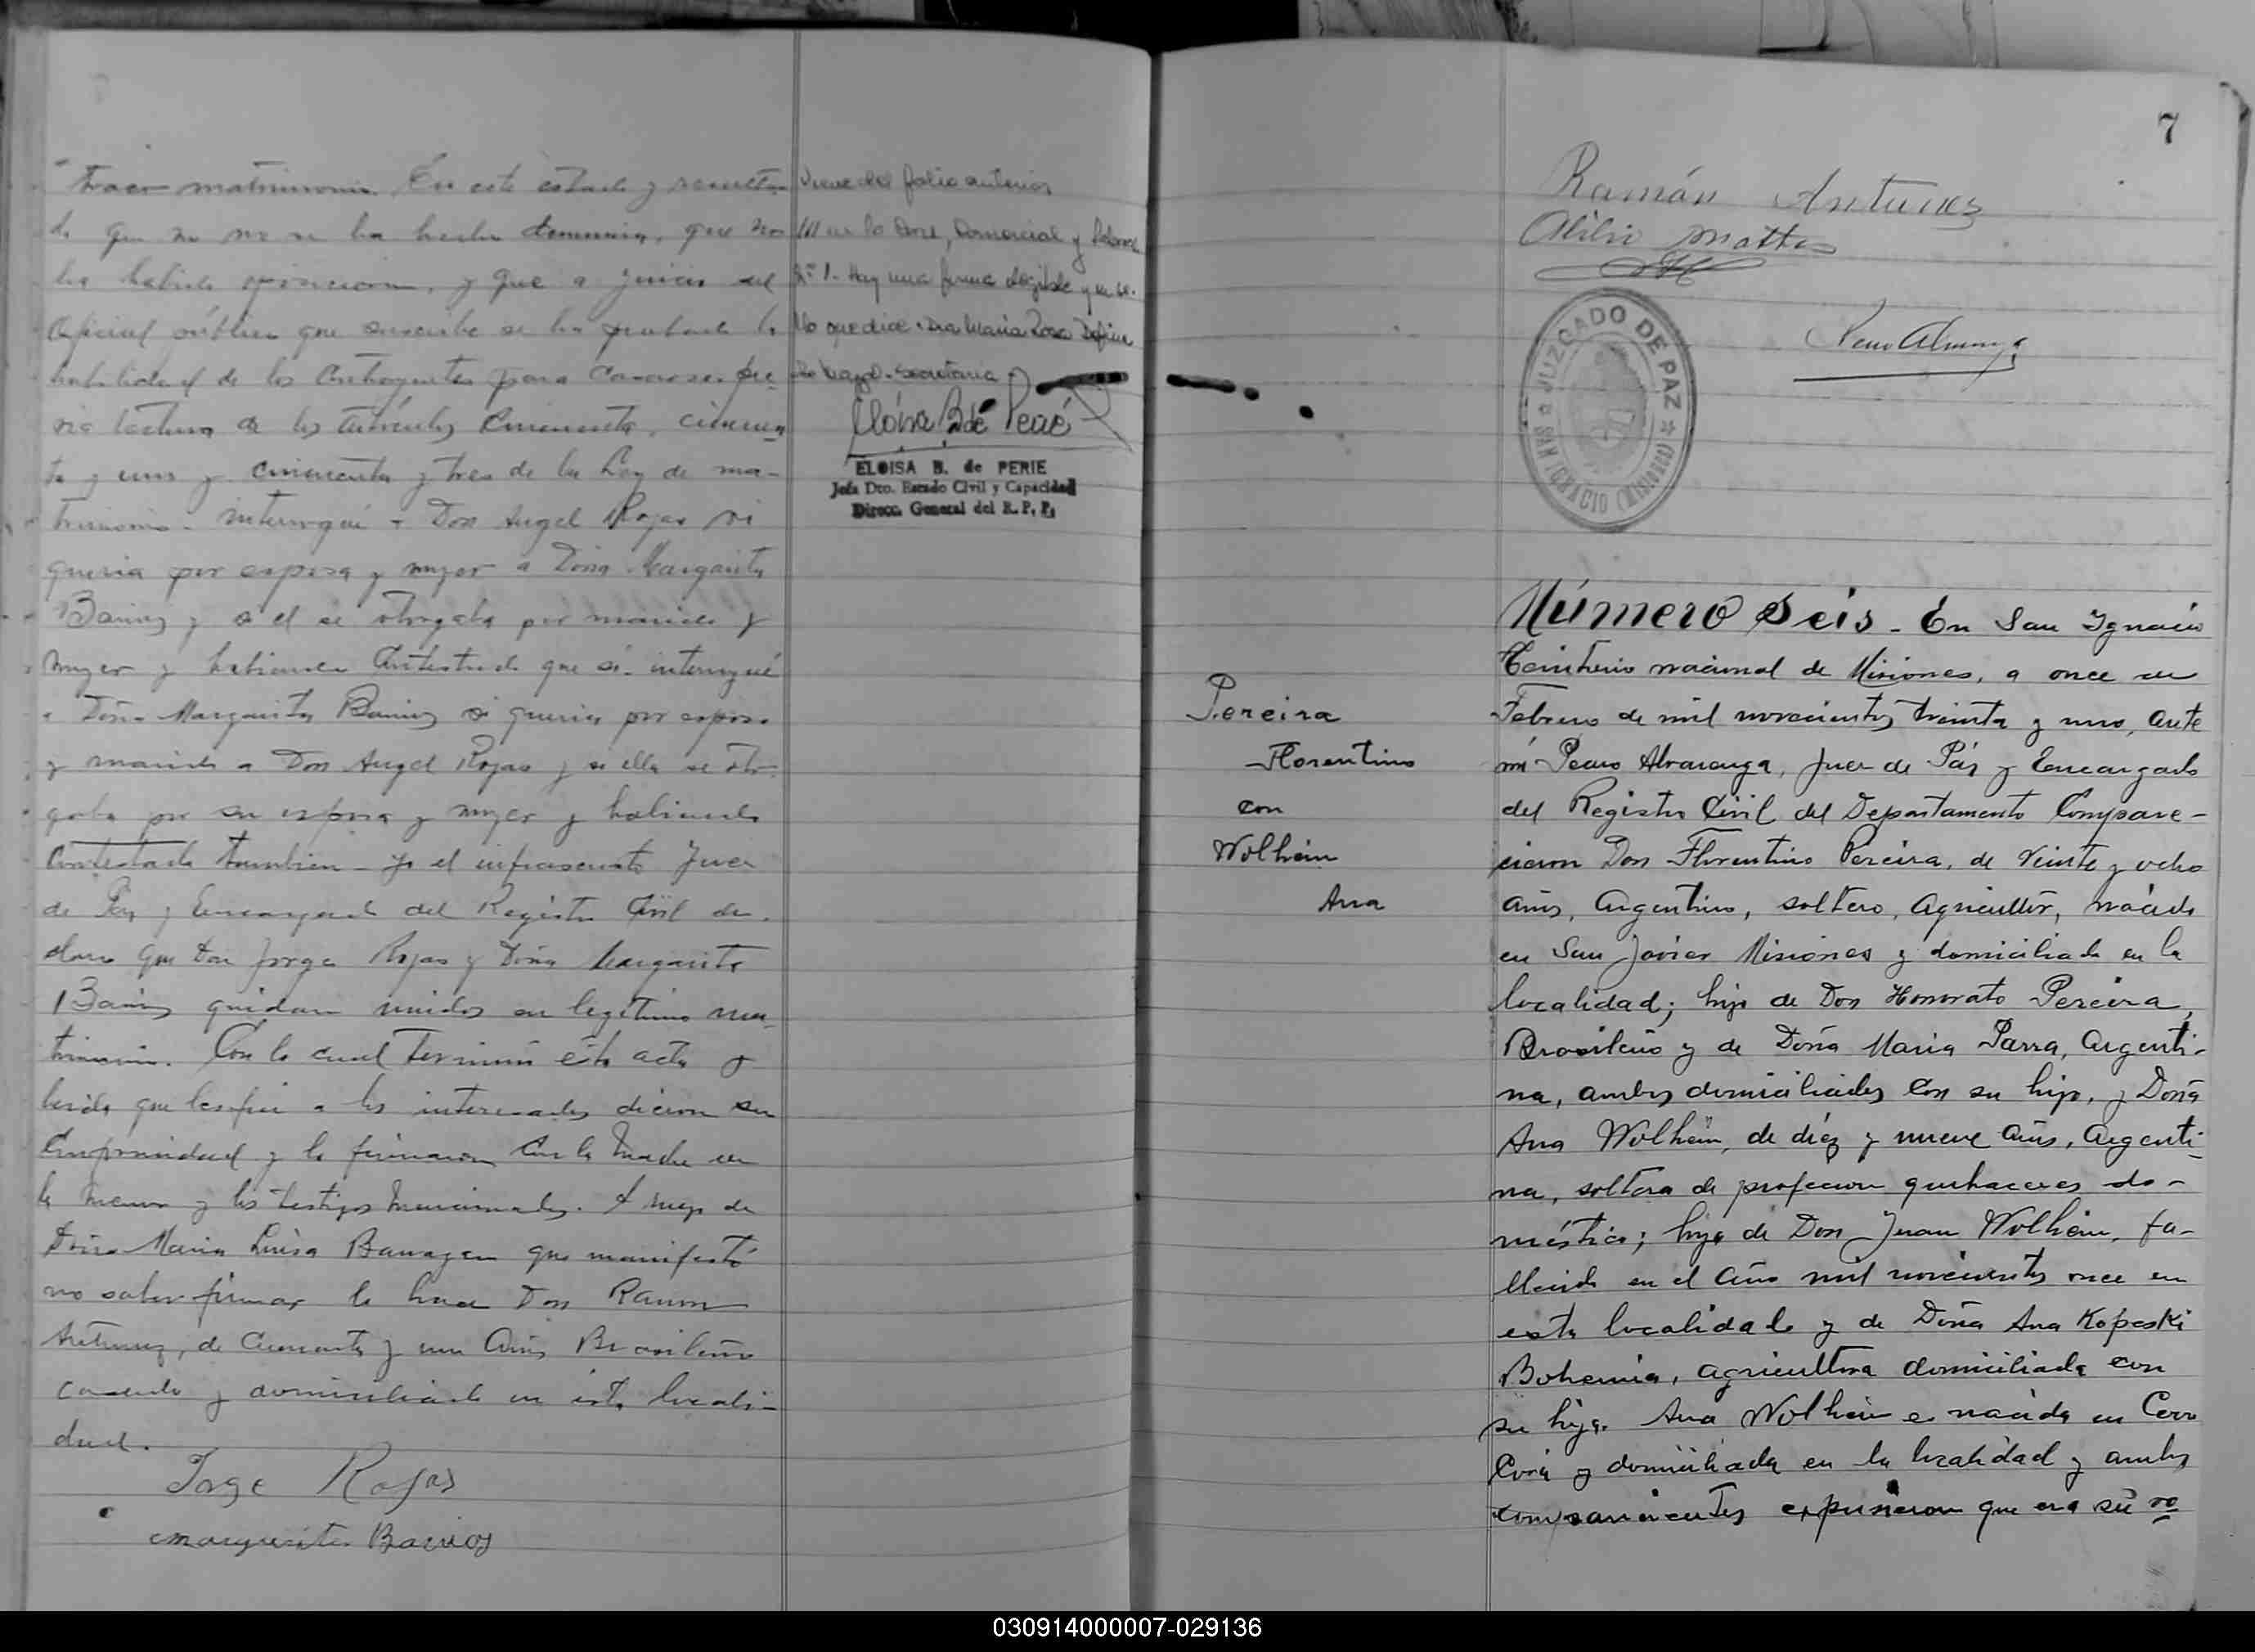 traer matrimonio. En este estado y resultan-
do que no me se ha hecho denuncia, que no
ha habido oposicion, y que a juicio del
Oficial público que suscribe se ha probado la
habilidad de los Contrayentes para casarse. pre-
via lectura de los articulos Cincuenta, cincuen-
ta y uno y cincuenta y tres de la Ley de ma-
trimonio - interrogué a Don Angel Rojas si
queria por esposa y mujer a Doña Margarita
Barrios y si el se otorgaba por marido y
mujer y habiendo Contestado que sí - interrogué
a Doña Margarita Barrios si queria por esposo
y marido a Don Angel Rojas y si ella se otor-
gaba por su esposa y mujer y habiendo
Contestado tambien - yo el infrascrito Juez
de Paz y Encargado del Registro Civil de-
claro que Don Jorge Rojas y Doña Margarita
Barrios quedan unidos en legitimo ma-
trimonio. Con lo cual terminó esta acta y
leida que les fué a los interesados dieron su
Conformidad y la firmaron Con la madre de
la menor y los testigos mencionados. A ruego de
Doña Maria Luisa que manifestó
no saber firmar lo hace Don Ramon
Antunez, de Cuarenta y un Años Brasileño
casado y domiciliado en esta locali-
dad.
Jorge Rojas
Margarita Barrios
Viene del folio anterior
/// en lo Civil, Comercial y Laboral
Nº 1. Hay una firma ilegible y un se-
llo que dice: Dra Maria Rosa
Secretaria
ELOISA B. de PERIE
Jefa Dto. Estado Civil y Capacidad
Direcc. General del R. P. P.
7
Ramón Antunez
Abilio Mattos
JUZGADO DE PAZ
SAN IGNACIO (MISIONES)
Pedro Alvarenga
Pereira
Florentino
con
Wolhein
Ana
Número Seis - En San Ignacio
Territorio nacional de Misiones, a once de
Febrero de mil novecientos treinta y uno, ante
mí Pedro Alvarenga, Juez de Páz y Encargado
del Registro Civil del Departamento Compare-
cieron Don Florentino Pereira, de veinte y ocho
años, Argentino, soltero, Agricultor, nacido
en San Javier Misiones y domiciliado en la
localidad; hijo de Don Honorato Pereira,
Brasileño y de Doña Maria Parra, Argenti-
na, ambos domiciliados Con su hijo, y Doña
Ana Wolhein, de diéz y nueve años, Argenti-
na, soltera de profecion quehaceres do-
mésticos; hija de Don Juan Wolhein, fa-
llecido en el Año mil novecientos once en
esta localidad y de Doña Ana Kopeski
Bohemia, agricultora domiciliada con
su hija. Ana Wolhein es nacida en Cerro
Corá y domiciliada en la localidad y ambos
comparecientes expusieron que era su vo
030914000007-029136